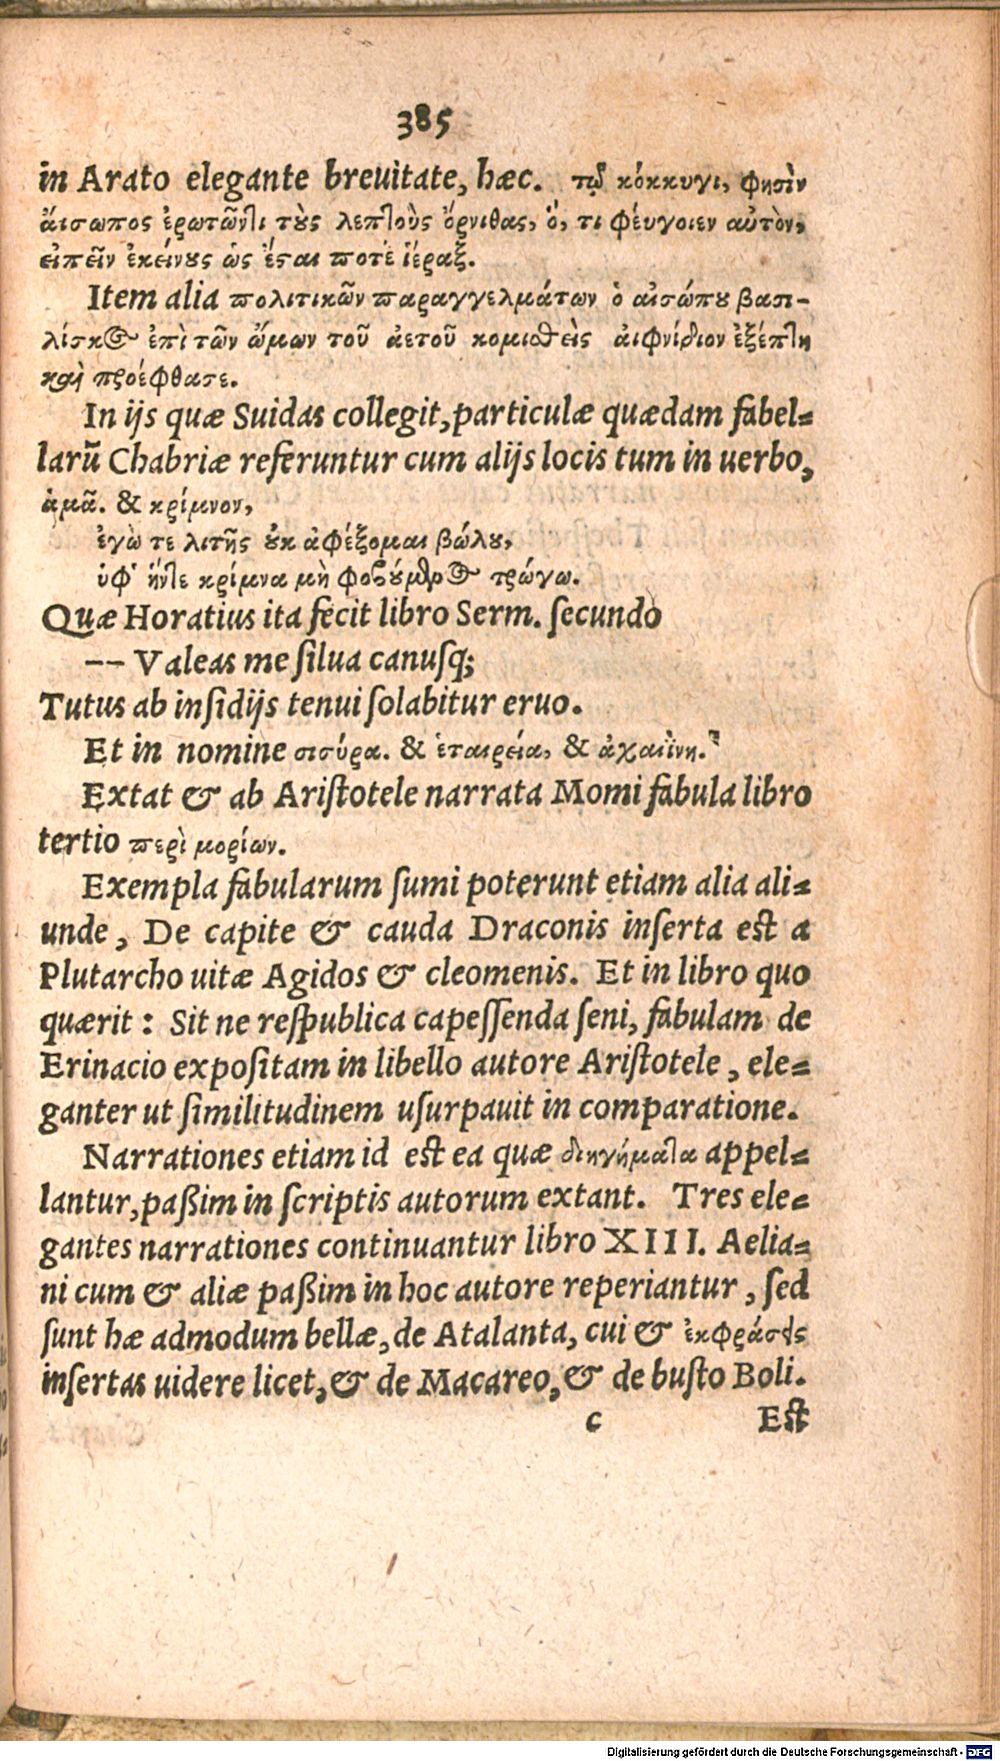 385
in Arato elegante breuitate, hæc. τῷ κόκκυγι, φησὶν
ἄισωπος ἐρωτῶντι τὺς λεπτοὺς ὄρνιθας, ὅ, τι φέυγοιεν αὐτὸν,
εἰπεῖν ἐκείνους ὡς ἔσαι ποτὲ ἱέραξ.
Item alia πολιτικῶν παραγγελμάτων ὁ αἰσώπου βασι-
λίσκος ἐπὶ τῶν ὤμων τοῦ ἀετοῦ κομισθεὶς αἰφνίδιον ἐξέπτη
καὶ προέφθασε.
In ijs quæ Suidas collegit, particulæ quædam fabel-
larũ Chabriæ referuntur cum alijs locis tum in uerbo,
ἁμᾶ. & κρίμνον,
ἐγὼ τε λιτῆς οὐκ ἀφέξομαι βώλου,
ὑφ' ἥντε κρίμνα μὴ φοβούμενος τρώγω.
Quæ Horatius ita fecit libro Serm. secundo
-- Valeas me silua canusq;
Tutus ab insidijs tenui solabitur eruo.
Et in nomine σισύρα. & ἑταιρεία, & ἀχαιΐνη.
Extat & ab Aristotele narrata Momi fabula libro
tertio περὶ μορίων.
Exempla fabularum sumi poterunt etiam alia ali-
unde, De capite & cauda Draconis inserta est a
Plutarcho uitæ Agidos & cleomenis. Et in libro quo
quærit: Sit ne respublica capessenda seni, fabulam de
Erinacio expositam in libello autore Aristotele, ele-
ganter ut similitudinem usurpauit in comparatione.
Narrationes etiam id est ea quæ διηγήματα appel-
lantur, paßim in scriptis autorum extant. Tres ele-
gantes narrationes continuantur libro XIII. Aelia-
ni cum & aliæ paßim in hoc autore reperiantur, sed
sunt hæ admodum bellæ, de Atalanta, cui & ἐκφράσεις
insertas uidere licet, & de Macareo, & de busto Boli.
c Est
Digitalisierung gefördert durch die Deutsche Forschungsgemeinschaft - DFG